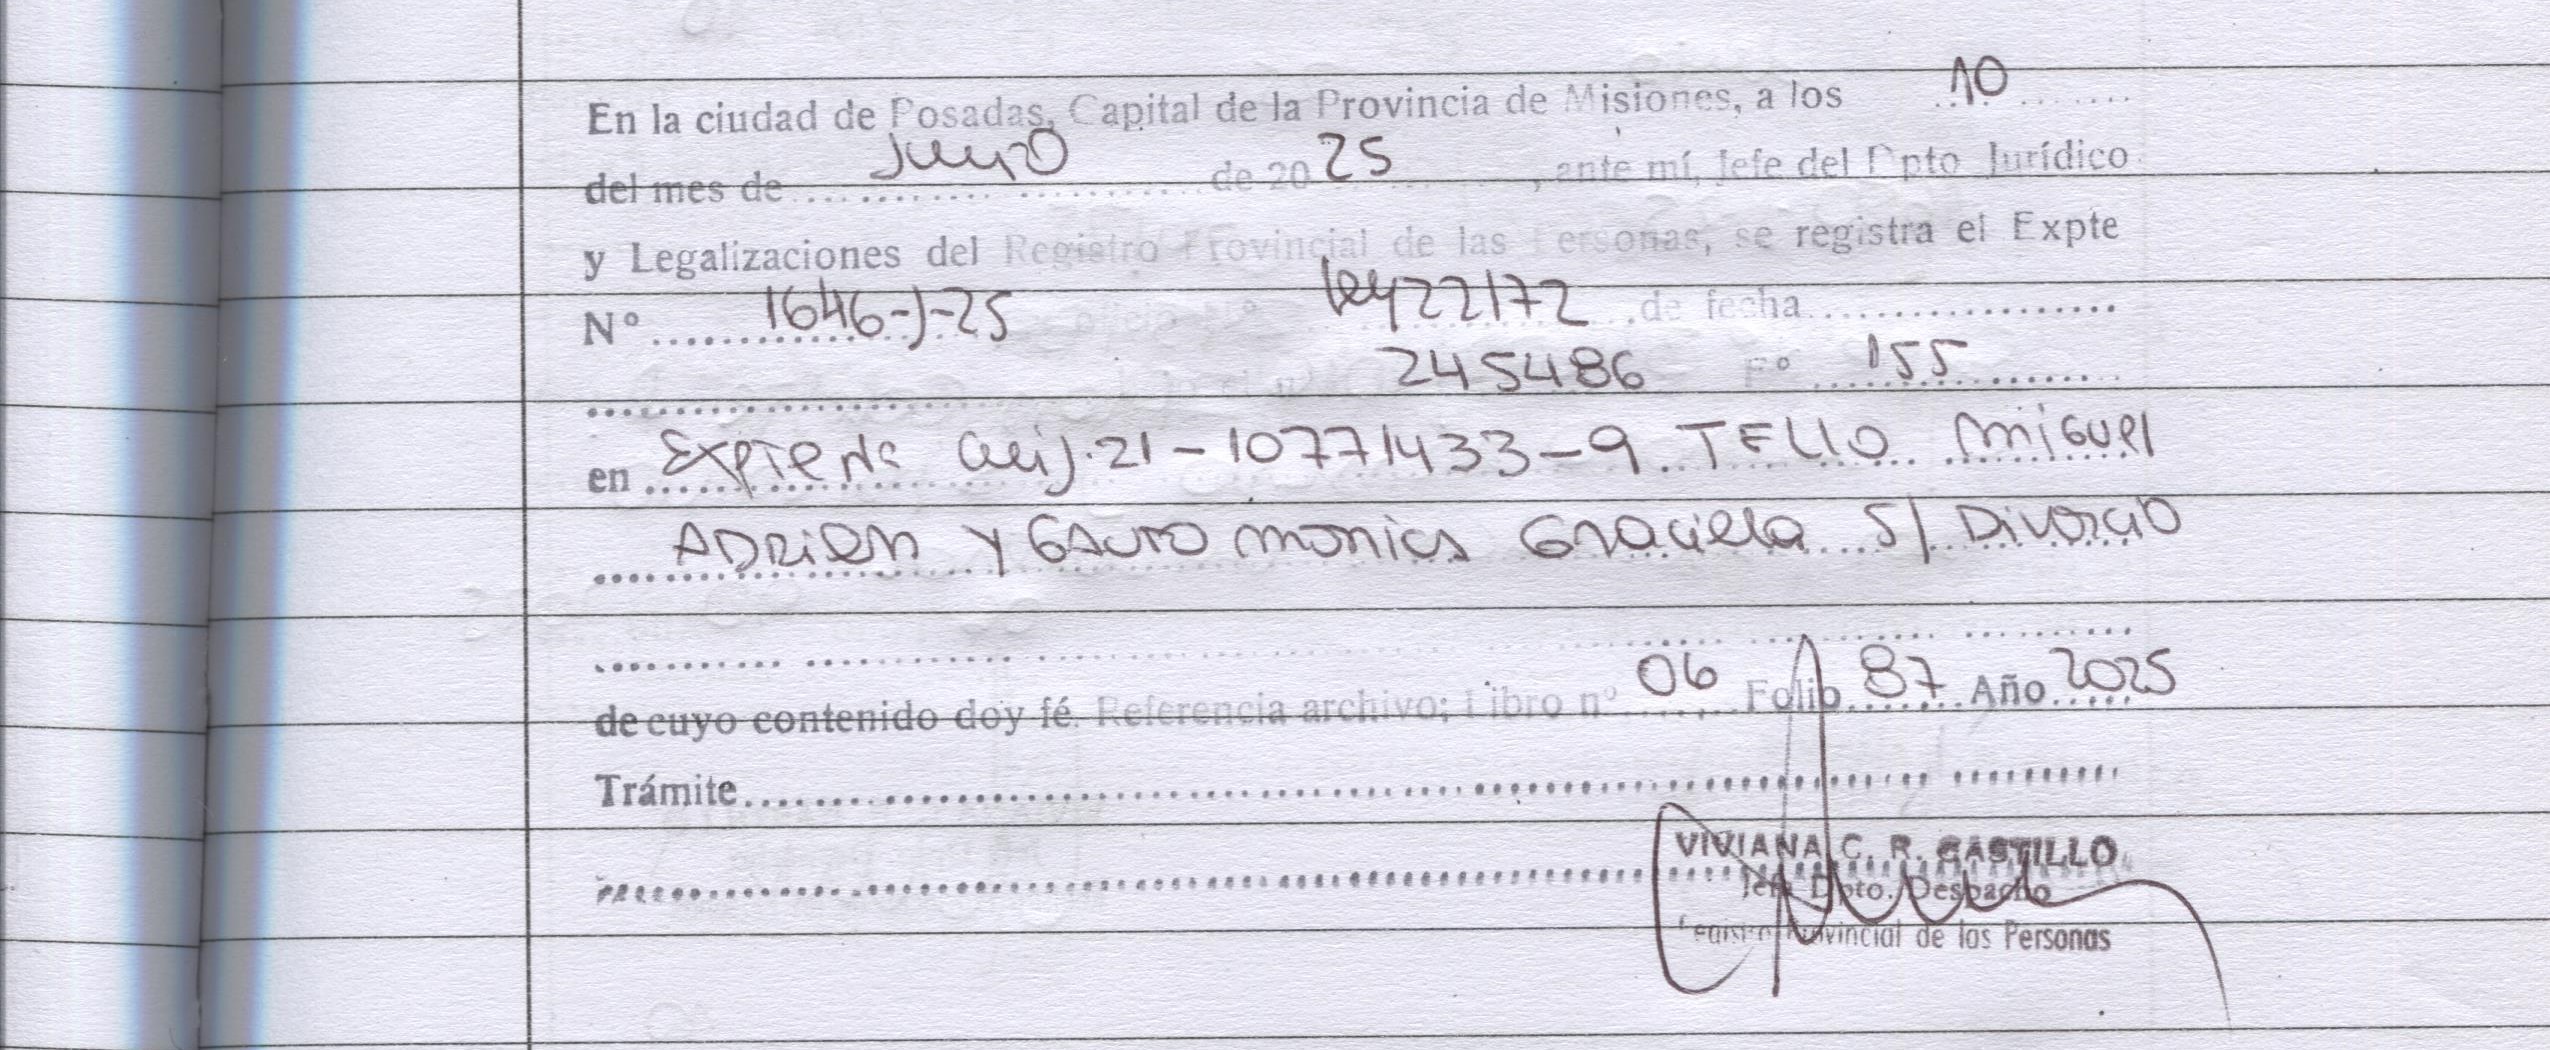 En la ciudad de Posadas, Capital de la Provincia de Misiones, a los 10
del mes de Junio de 2025, ante mí, Jefe del Dpto Jurídico
y Legalizaciones del Registro Provincial de las Personas, se registra el Expte
N° 1646-J-25 oficio N° Ley 22172 de fecha
245486 F° 155
en Expte N° Cuij. 21-10771433-9 TELLO Miguel
ADRIAN Y GAUTO monica Graciela S/ Divorcio
de cuyo contenido doy fé. Referencia archivo; Libro n° 06 Folio 87 Año 2025
Trámite
VIVIANA C. R. CASTILLO
Jefa Dpto. Despacho
Registro Provincial de las Personas